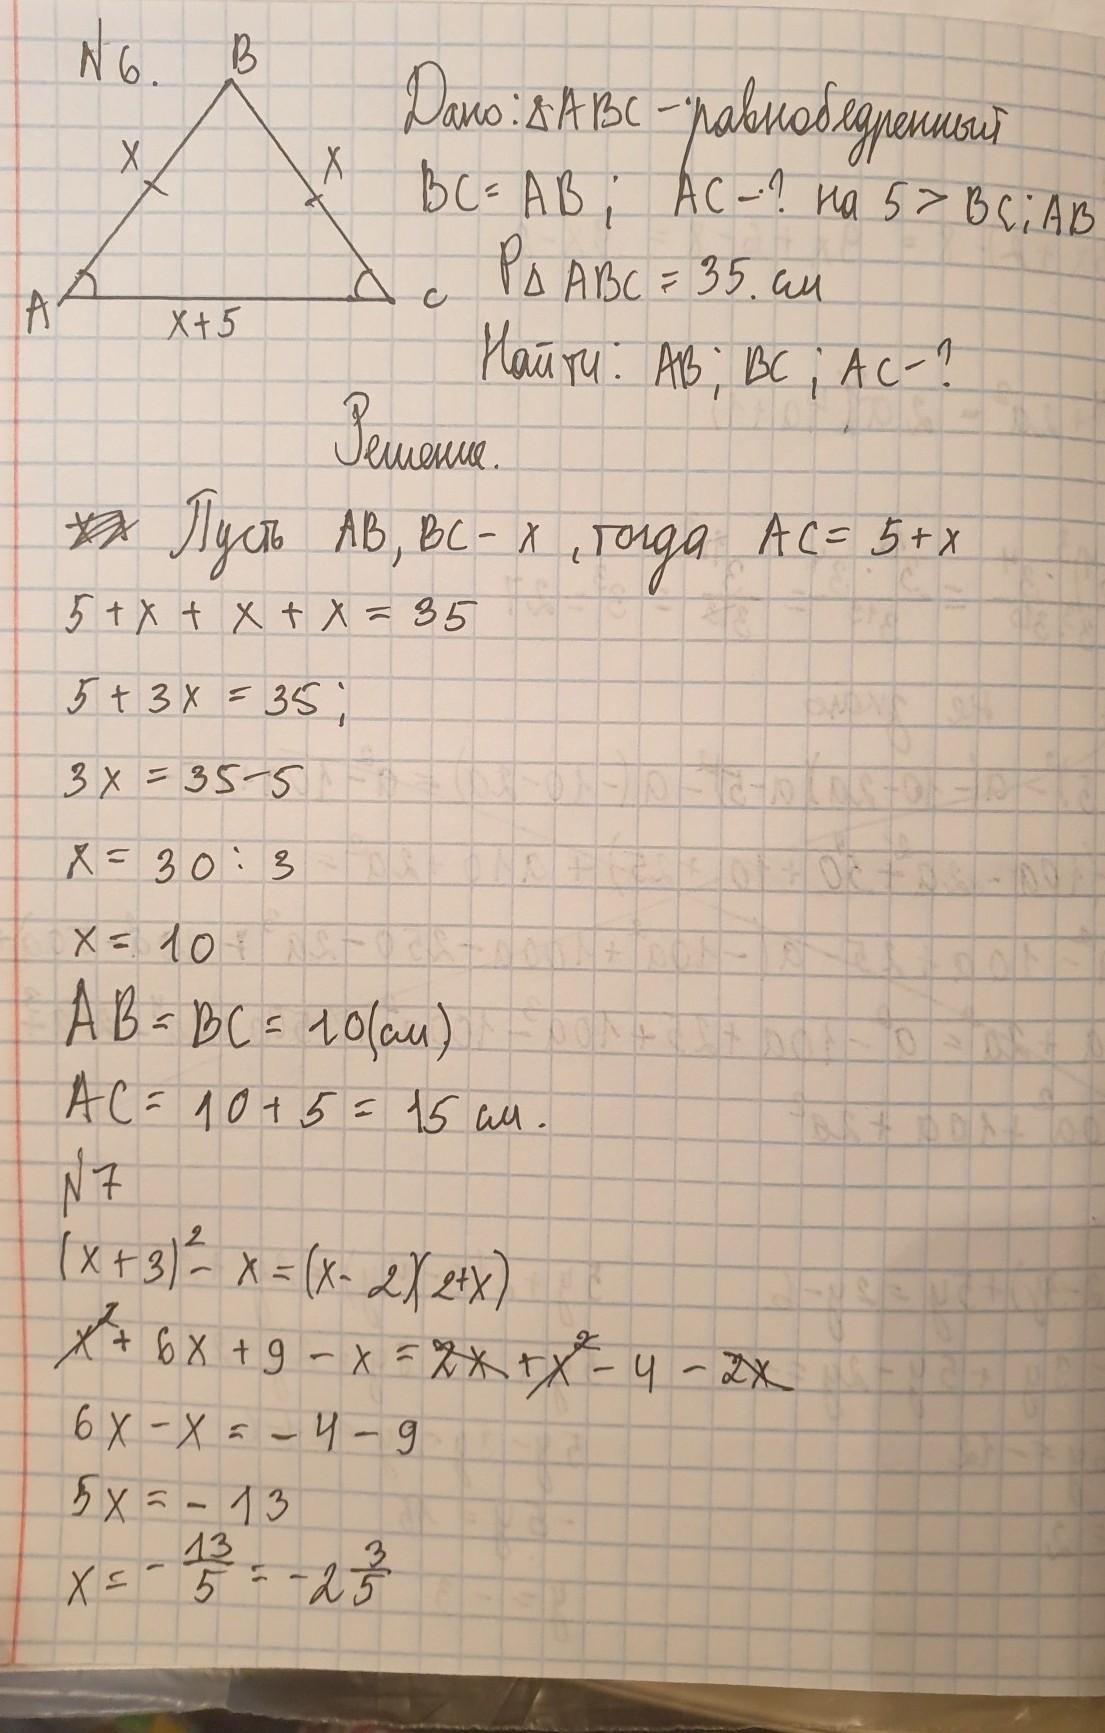 N 6.
B
x x
A C
x+5
Дано: ΔABC - равнобедренный
BC = AB ; AC -? на 5 > BC; AB
PΔ ABC = 35. см
Найти: AB; BC ; AC-?
Решение.
Пусть AB, BC - x , тогда AC = 5+x
5 + x + x + x = 35
5 + 3x = 35;
3x = 35-5
x = 30 : 3
x = 10
AB = BC = 10(см)
AC = 10 + 5 = 15 см.
N 7
(x+3)² - x = (x- 2)(2+x)
x² + 6x + 9 - x = 2x + x² - 4 - 2x
6x - x = - 4 - 9
5x = - 13
x = - 13/5 = - 2 3/5